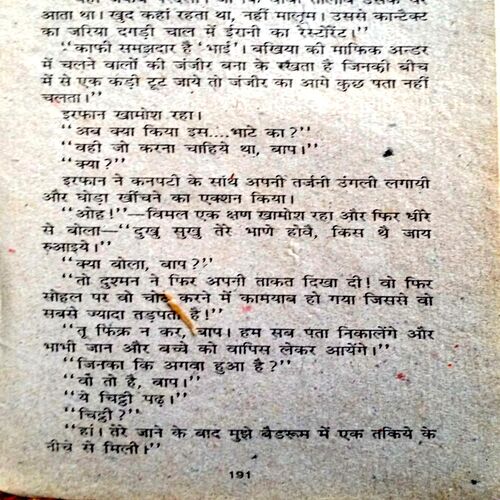 आता था। खुद कहां रहता था, नहीं मालूम। उससे कान्टेक्ट
का जरिया दगड़ी चाल में ईरानी का रेस्टोरेंट।"
"काफी समझदार है 'भाई'। बखिया की माफिक अन्डर
में चलने वालों की जंजीर बना के रखता है जिनकी बीच
में से एक कड़ी टूट जाये तो जंजीर का आगे कुछ पता नहीं
चलता।"
इरफान खामोश रहा।
"अब क्या किया इस....भाटे का?"
"वही जो करना चाहिये था, बाप।"
"क्या?"
इरफान ने कनपटी के साथ अपनी तर्जनी उंगली लगायी
और घोड़ा खींचने का एक्शन किया।
"ओह!"—विमल एक क्षण खामोश रहा और फिर धीरे
से बोला—"दुखु सुखु तेरे भाणे होवै, किस थै जाय
रुआइये।"
"क्या बोला, बाप?"
"तो दुश्मन ने फिर अपनी ताकत दिखा दी! वो फिर
सोहल पर वो चोट करने में कामयाब हो गया जिससे वो
सबसे ज्यादा तड़पता है!"
"तू फिक्र न कर, बाप। हम सब पता निकालेंगे और
भाभी जान और बच्चे को वापिस लेकर आयेंगे।"
"जिनका कि अगवा हुआ है?"
"वो तो है, बाप।"
"ये चिट्ठी पढ़।"
"चिट्ठी?"
"हां। तेरे जाने के बाद मुझे बैडरूम में एक तकिये के
नीचे से मिली।"
191